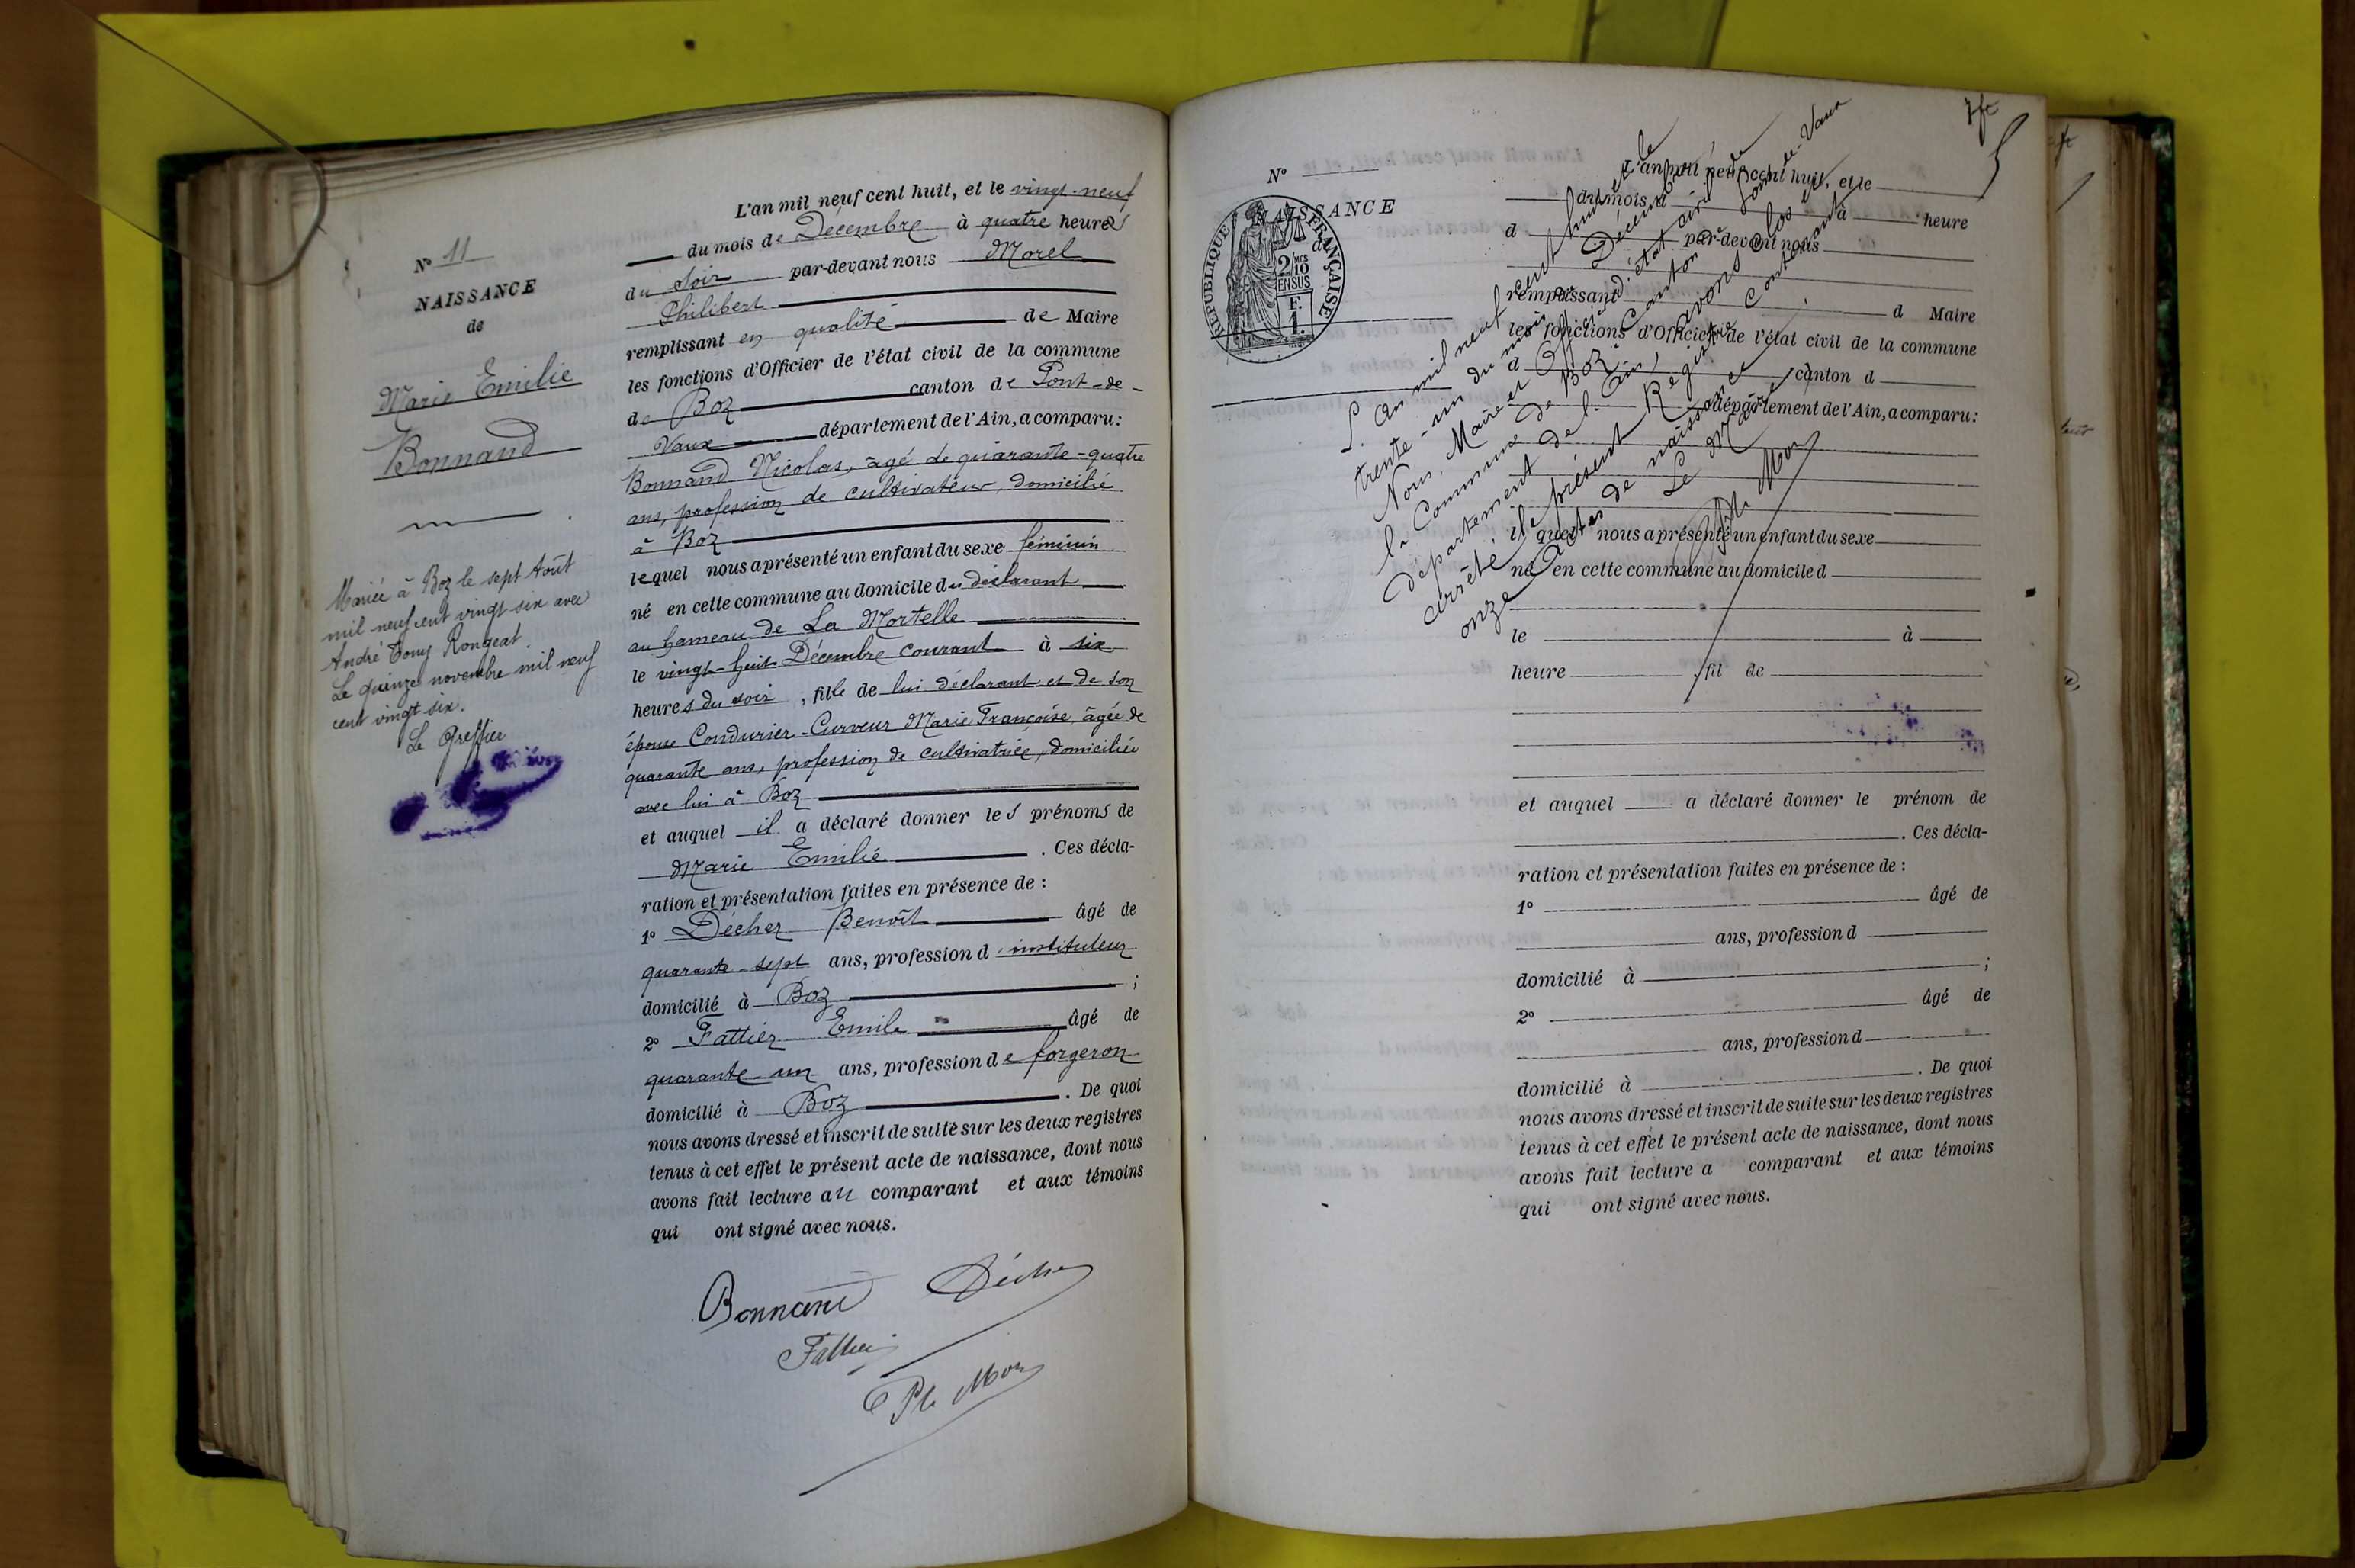 N° 11
NAISSANCE
de
Marie Emilie
Bonnand
Mariée à Boz le sept Août
mil neuf cent vingt six avec
André Tony Rongeat.
Le quinze novembre mil neuf
cent vingt six.
Le Greffier
L'an mil neuf cent huit, et le vingt-neuf
du mois de Décembre à quatre heures
du soir par-devant nous Morel
Philibert
remplissant en qualité de Maire
les fonctions d'Officier de l'état civil de la commune
de Boz canton de Pont-de-
Vaux département de l'Ain, a comparu:
Bonnand Nicolas, âgé de quarante-quatre
ans, profession de cultivateur, domicilié
à Boz
lequel nous a présenté un enfant du sexe féminin
né en cette commune au domicile du déclarant
au hameau de La Mortelle
le vingt-huit Décembre courant à six
heures du soir, fille de lui déclarant et de son
épouse Condurier-Curveur Marie Françoise, âgée de
quarante ans, profession de cultivatrice, domiciliée
avec lui à Boz
et auquel il a déclaré donner les prénoms de
Marie Emilie. Ces décla-
ration et présentation faites en présence de :
1° Décher Benoît âgé de
quarante-sept ans, profession d'instituteur
domicilié à Boz ;
2° Fattier Emile âgé de
quarante-un ans, profession de forgeron
domicilié à Boz. De quoi
nous avons dressé et inscrit de suite sur les deux registres
tenus à cet effet le présent acte de naissance, dont nous
avons fait lecture au comparant et aux témoins
qui ont signé avec nous.
Bonnand Décher
Fattier
Ph Mor
N°
NAISSANCE
d
RÉPUBLIQUE FRANÇAISE
2/10
EN SUS
F.
1.
L'an mil neuf cent huit et le
trente-un du mois de Décembre,
Nous, Maire et Officier d'état civil de
la Commune de Boz, Canton de Pont-de-Vaux
département de l'Ain, avons clos et
arrêté le présent Registre contenant
onze actes de naissance.
Le Maire
Ph Mor
L'an mil neuf cent huit, et le
du mois d à heure
d par-devant nous
remplissant d Maire
les fonctions d'Officier de l'état civil de la commune
d canton d
département de l'Ain, a comparu:
lequel nous a présenté un enfant du sexe
né en cette commune au domicile d
le à
heure, fil de
et auquel a déclaré donner le prénom de
. Ces décla-
ration et présentation faites en présence de :
1° âgé de
ans, profession d
domicilié à ;
2° âgé de
ans, profession d
domicilié à . De quoi
nous avons dressé et inscrit de suite sur les deux registres
tenus à cet effet le présent acte de naissance, dont nous
avons fait lecture a comparant et aux témoins
qui ont signé avec nous.